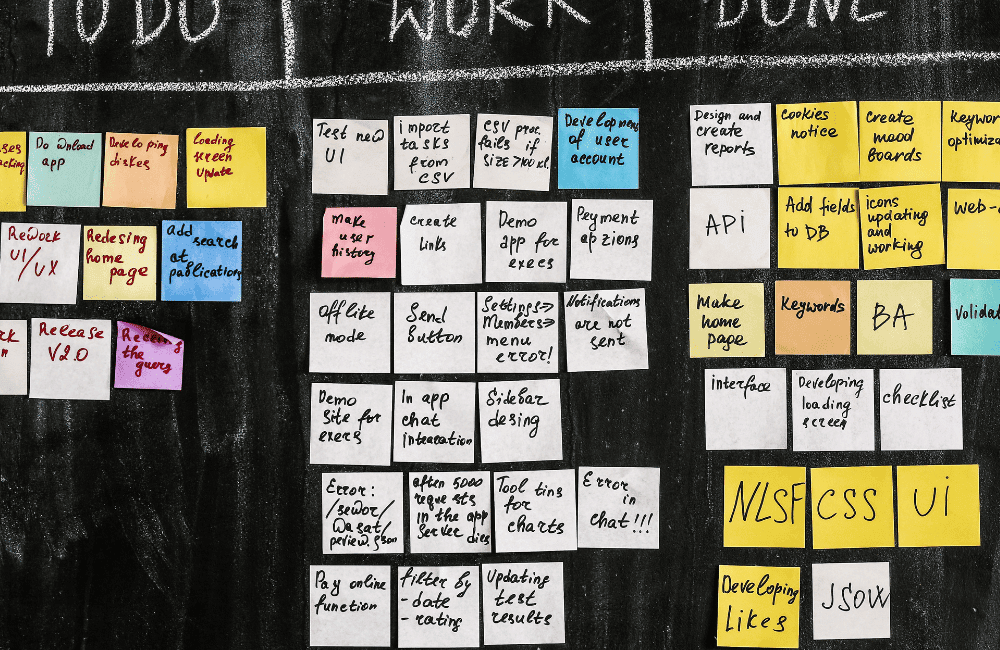 TO DO
WORK
DONE
Do wnload
app
Develo ping
diskes
loading
screen
Update
Rework
UI/UX
Redesing
home
page
add
search
at
Release
V2.0
the
Test new
UI
import
ta sks
from
CSV
CSV proc.
fails if
Development
of user
account
make
user
history
create
links
Demo
app for
execs
Peyment
ap zions
offlite
mode
Send
button
Settings=>
Members=>
menu
error!
Notifications
are not
sent
Demo
Site for
execs
In app
chat
Sidebar
desing
Error:
after 5000
reque sts
in the app
Server dies
Tool tins
for
charts
Error
in
chat!!!
Pay online
function
filter by
- date
- rating
Updating
test
results
Design and
create
reports
cookies
notice
create
mood
Boards
API
Add fields
to DB
icons
updating
and
working
web-
Make
home
page
Keywords
BA
interface
Developing
loading
screen
checklist
NLSF
CSS
Ui
Developing
Likes
JSOW